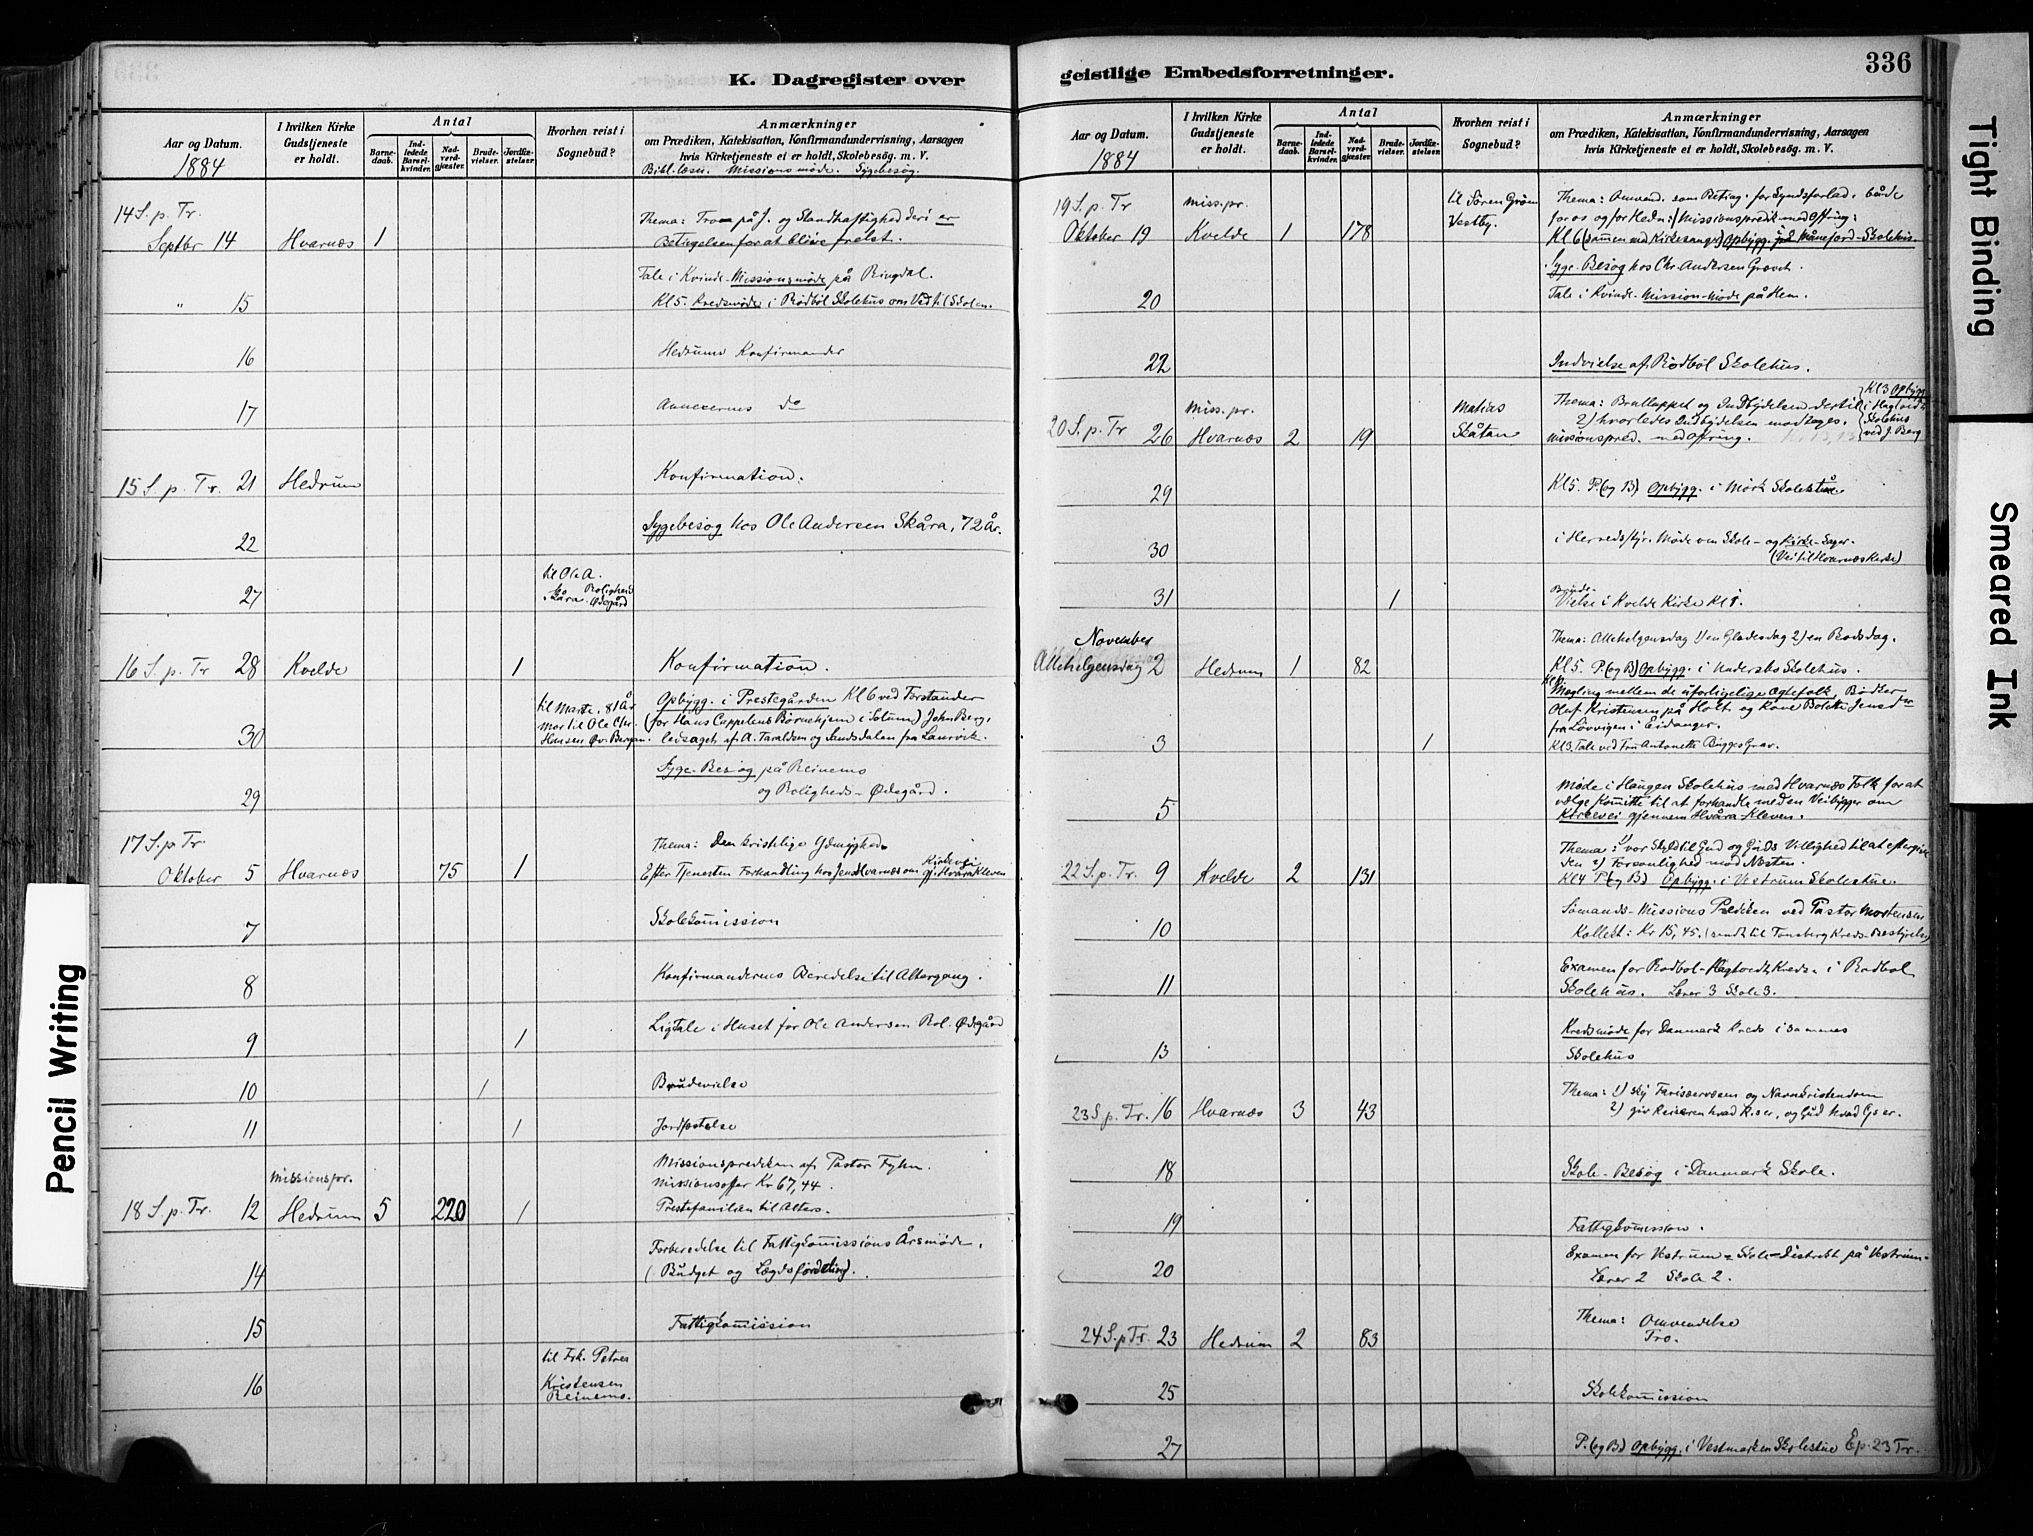 K. Dagregister over
Aar og Datum.
1884
I hvilken Kirke
Gudstjeneste
er holdt.
Antal
Barne-
daab.
Ind-
ledede
Barsel-
kvinder.
Nad-
verd-
gjester.
Brude-
vielser.
Jordfæ-
stelser.
Hvorhen reist i
Sognebud?
Anmærkninger
om Prædiken, Katekisation, Konfirmandundervisning, Aarsagen
hvis Kirketjeneste et er holdt, Skolebesög. m. V.
Bibl.læsn. Missionsmöde. Sygebesög.
14 S. p. Tr.
Septbr 14 Hvarnæs 1
Thema: Tro på J. og Standhaftighed deri er
Betingelsen for at blive frelst.
Tale i Kvinde-Missionsmöde på Ringdal.
" 15 Kl 5. Kredsmöde i Rödböl Skolehus om Ved til Skolen.
16 Hedrums Konfirmander
17 Annexernes do
15 S. p. Tr. 21 Hedrum Konfirmation.
22 Sygebesög hos Ole Andersen Skåra, 72 år.
27 til Ole A.
Skåra Rolighed
Ødegård
16 S. p. Tr 28 Kvelde 1 Konfirmation.
30 til Marte, 81 År
mor til Ole Chr.
Hansen Øv. Bergan.
Opbygg. i Prestegården Kl 6 ved Forstander
(for Hans Cappelens Børnehjem i Solum) John Berg,
ledsaget af A. Taraldsen og Sandsdalen fra Laurvik.
29 Syge-Besög på Reinemo
og Roligheds-Ødegård.
17 S. p. Tr.
Oktober 5 Hvarnæs 75 1
Thema: Den kristelige Ydmyghed.
Efter Tjenesten Forhandling hos Jens Hvarnæs om Kirkevei
gj. Hvåra Kleven
7 Skolekommission
8 Konfirmandernes Beredelse til Altergang.
9 1 Ligtale i Huset for Ole Andersen Rol. Ødegård
10 1 Brudevielse
11 1 Jordfæstelse
missionspr.
18 S. p. Tr. 12 Hedrum 5 220 1
Missionsprediken af Pastor Fyhn.
missionsoffer Kr 67,44.
Prestefamilien til Alters.
14 Forberedelse til Fattigkommissions Årsmöde.
(Budget og Lægdsfordeling).
15 Fattigkommission
16 til Frk. Petrea
Kristensen
Reinemo.
geistlige Embedsforretninger.
336
Aar og Datum.
1884
I hvilken Kirke
Gudstjeneste
er holdt.
Antal
Barne-
daab.
Ind-
ledede
Barsel-
kvinder.
Nad-
verd-
gjester.
Brude-
vielser.
Jordfæ-
stelser.
Hvorhen reist i
Sognebud?
Anmærkninger
om Prædiken, Katekisation, Konfirmandundervisning, Aarsagen
hvis Kirketjeneste et er holdt, Skolebesög. m. V.
19 S. p. Tr miss.pr.
Oktober 19 Kvelde 1 178
til Sören Gröm
Vestby.
Thema: Omvend. som Beting. for Syndsforlad. både
for os og for Hedn:/ Missionspredik med Offring:
Kl 6 (sammen med Kirkesanger) Opbygg. på Månejord-Skolehus.
Syge-Besög hos Chr. Andersen Gravdt.
20 Tale i Kvinde-Mission-Möde på Hem.
22 Indvielse af Rödböl Skolehus.
miss. pr.
20 S. p. Tr 26 Hvarnæs 2 19
Matias
Skåtan
Thema: Brulluppet og Indbydelsen dertil
2) hvorledes Indbydelsen modtages.
missionspred. med Offring.
Kl 3 Opbygg
i Hagtvedt
Skolehus
ved J. Berg
29 Kl 5. P. (og B) Opbygg. i Mörk Skolestue.
30 i Herredsstyr. Möde om Skole- og Kirke-Sager.
(Vei til Hvarnæs Kirke)
31 1 Brude-
Vielse i Kvelde Kirke Kl 1.
November
Allehelgensdag 2 Hedrum 1 82
Thema: Allehelgensdag 1) en Glædesdag 2) en Bodsdag.
Kl 5. P. (og B) Opbygg. i Undersbo Skolehus.
Mægling mellem de uforligelige Ægtefolk, Bödker
Olaf Kristensen på Holt og Kone Bolette Jensdr
fra Lövvigen i Eidanger.
3 1 Kl 3. Tale ved Fru Antonette Bugges Grav.
5 Möde i Haugen Skolehus med Hvarnæs Folk for at
vælge Komitte til at forhandle med en Veibygger om
Kirkevei gjennem Hvåra-Kleven.
22 S. p. Tr. 9 Kvelde 2 131
Thema: 1) vor Skyld til Gud og Guds Villighed til at eftergive
den 2) Forsonlighed mod Næsten.
Kl 4 P. (og B) Opbygg. i Vestrum Skolestue.
10 Sömands-Missions Prediken ved Pastor Mortensen
Kollekt: Kr 15,45. (sendt til Tønsberg Kreds-Bestyrelse)
11 Examen for Rödböl-Hagtvedt Kreds. i Rödböl
Skolehus. Lærer 3 Skole 3.
13 Kredsmöde for Danmark Kreds i sammes
Skolehus
23 S p. Tr. 16 Hvarnæs 3 43
Thema: 1) sky Farisæervæsen og Navnkristendom
2) giv Keiseren hvad K.s er, og Gud hvad G.s er.
18 Skole-Besög i Danmark Skole.
19 Fattigkommission.
20 Examen for Vestrum-Skole-Distrikt på Vestrum.
Lærer 2 Skole 2.
24 S. p Tr. 23 Hedrum 2 83
Thema: Omvendelse
Tro.
25 Skolekommission
27 P. (og B) Opbygg. i Vestmarken Skolestue Ep. 23 Tr.
Tight Binding
Smeared Ink
Pencil Writing